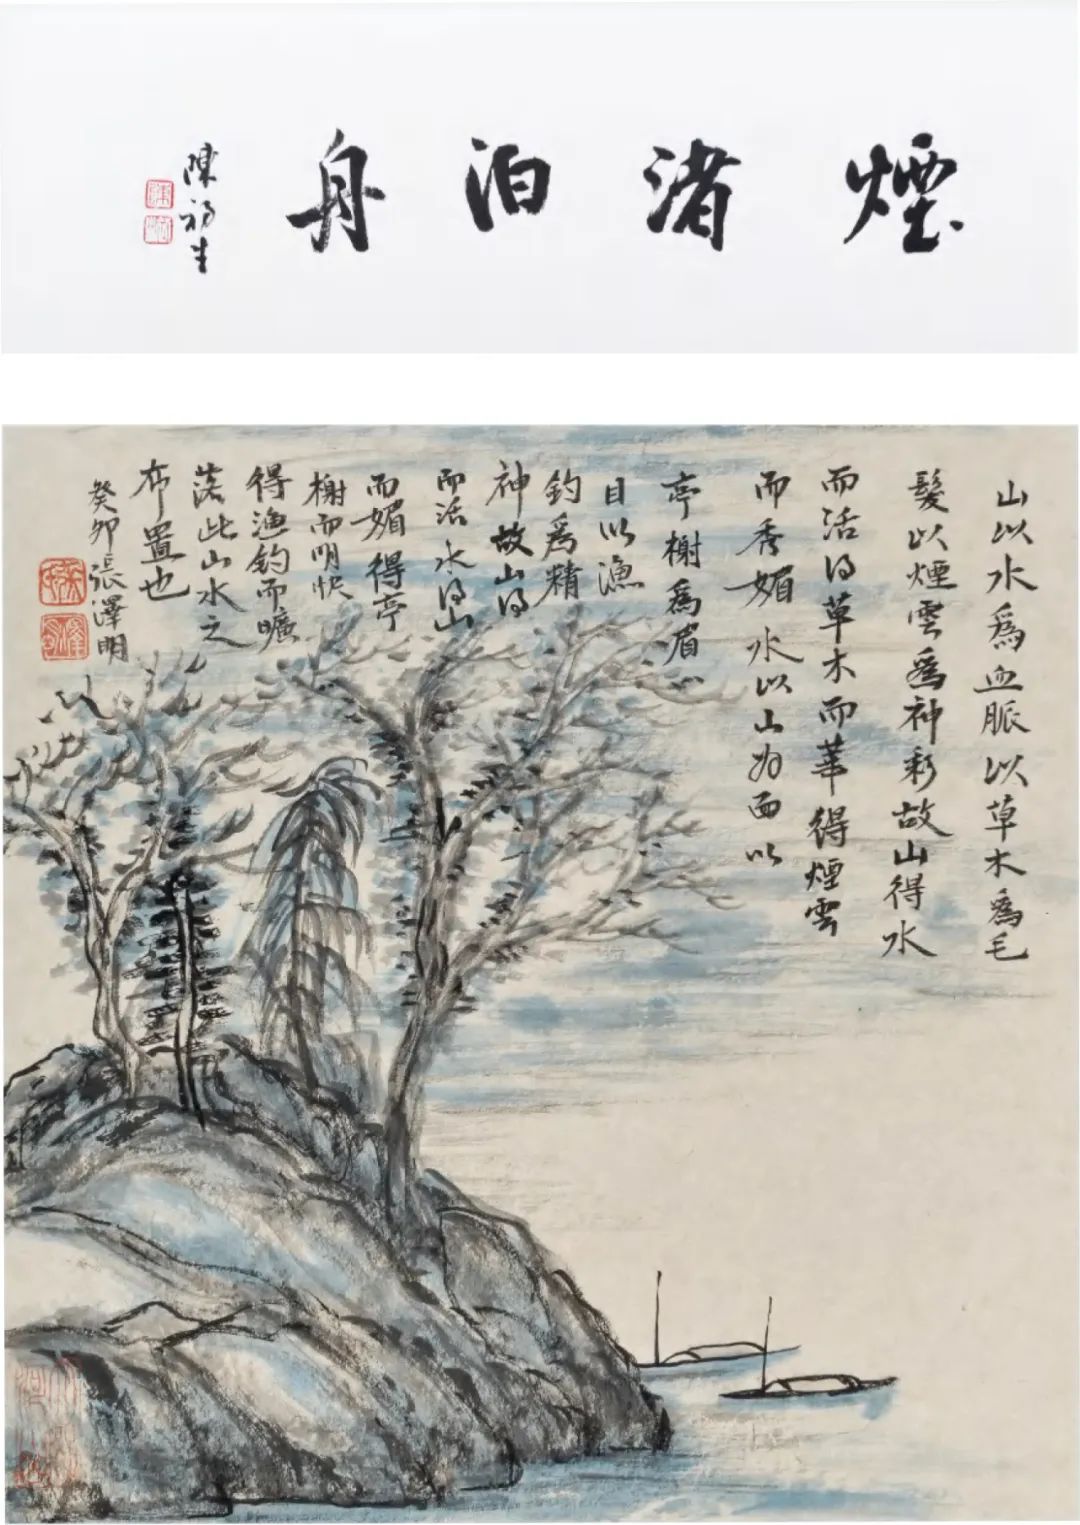 煙渚泊舟
陳福生
山以水爲血脈以草木爲毛
髮以煙雲爲神彩故山得水
而活得草木而華得煙雲
而秀媚水以山为面以
亭榭爲眉
目以漁
釣爲精
神故山得
而活水得山
而媚得亭
榭而明快
得漁釣而曠
落此山水之
布置也
癸卯張澤明